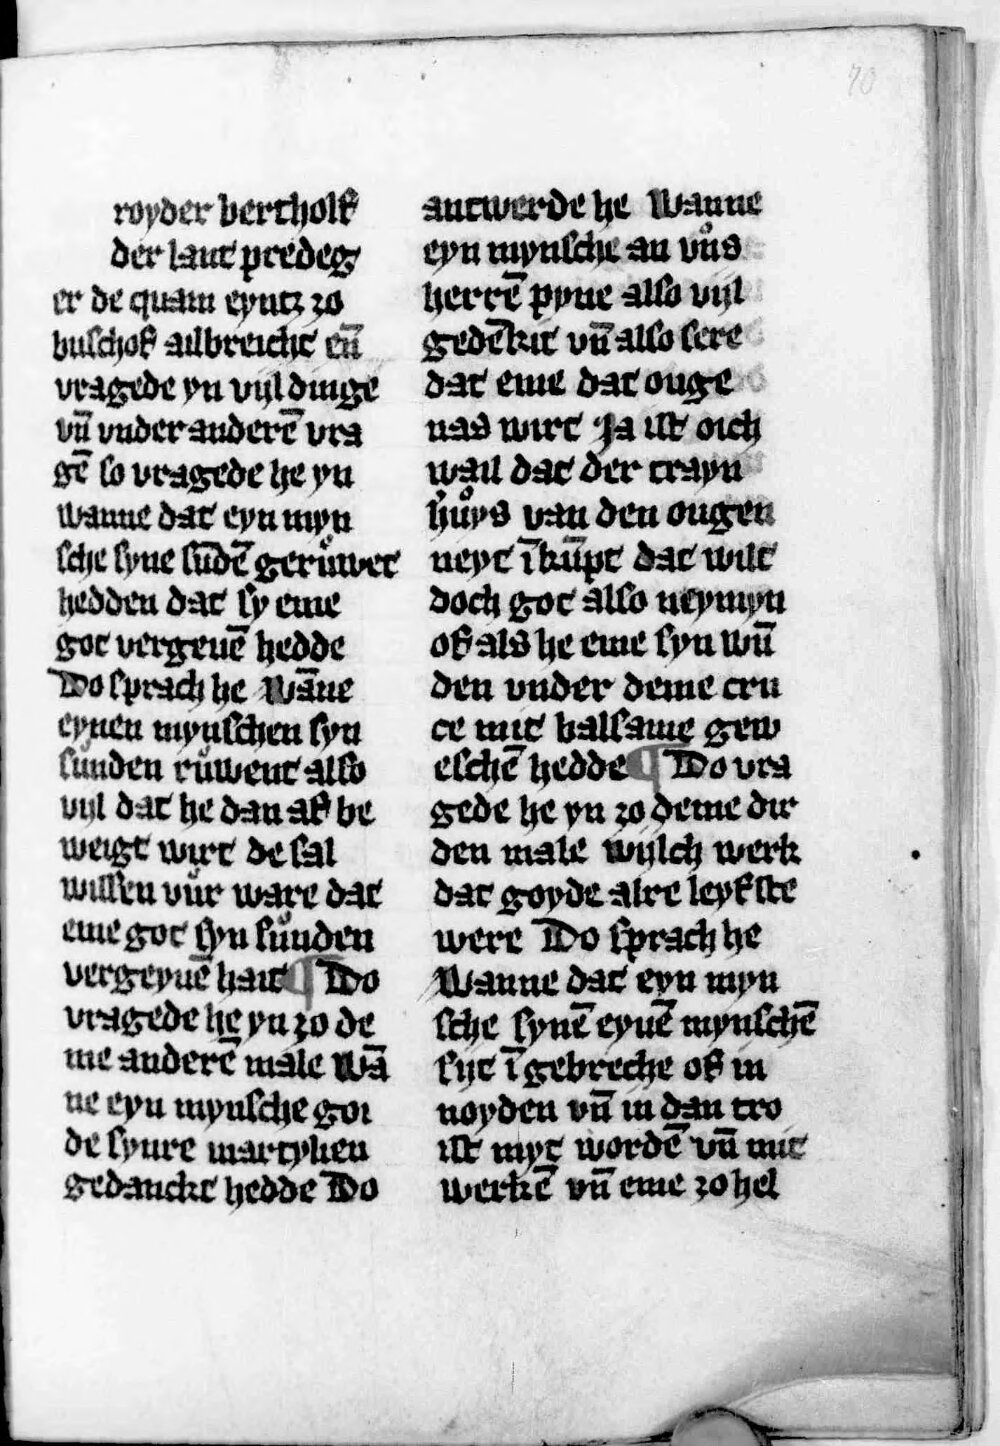 70
royder bertholf
der lant predeg
er de quam eyntz zo
buschof ailbreicht en̄
vragede yn vijl dinge
vn̄ vnder anderē vra
gē so vragede he yn
wanne dat eyn myn
sche syne sūdē gerůwet
hedden dat sy eme
got vergeuē hedde
Do sprach he wāne
eynen mynschen syn
sůnden růwent also
vijl dat he dan af be
weigt wirt de sal
wissen vůr ware dat
eme got syn sůnden
vergeyuē hait ¶ Do
vragede he yn zo de
me anderē male wā
ne eyn mynsche goi
de synre martylien
gedanckt hedde Do
antwerde he Wanne
eyn mynsche an vn̊s
herrē pyne also vijl
gedēkit vn̄ also sere
dat eme dat ouge
nas wirt Ja ist oich
wail dat der trayn
hůys van den ougen
neyt ī kūpt dat wilt
doch got also neymyn
of als he eme syn wū
den vnder deme cru
ce mit balsame gew
eschē hedde ¶ Do vra
gede he yn zo deme dir
den male wijlch werk
dat goyde alre leyfste
were Do sprach he
Wanne dat eyn myn
sche synē eyuē mynschē
sijt ī gebreche of in
noyden vn̄ in dan tro
ist myt wordē vn̄ mit
werkē vn̄ eme zo hel